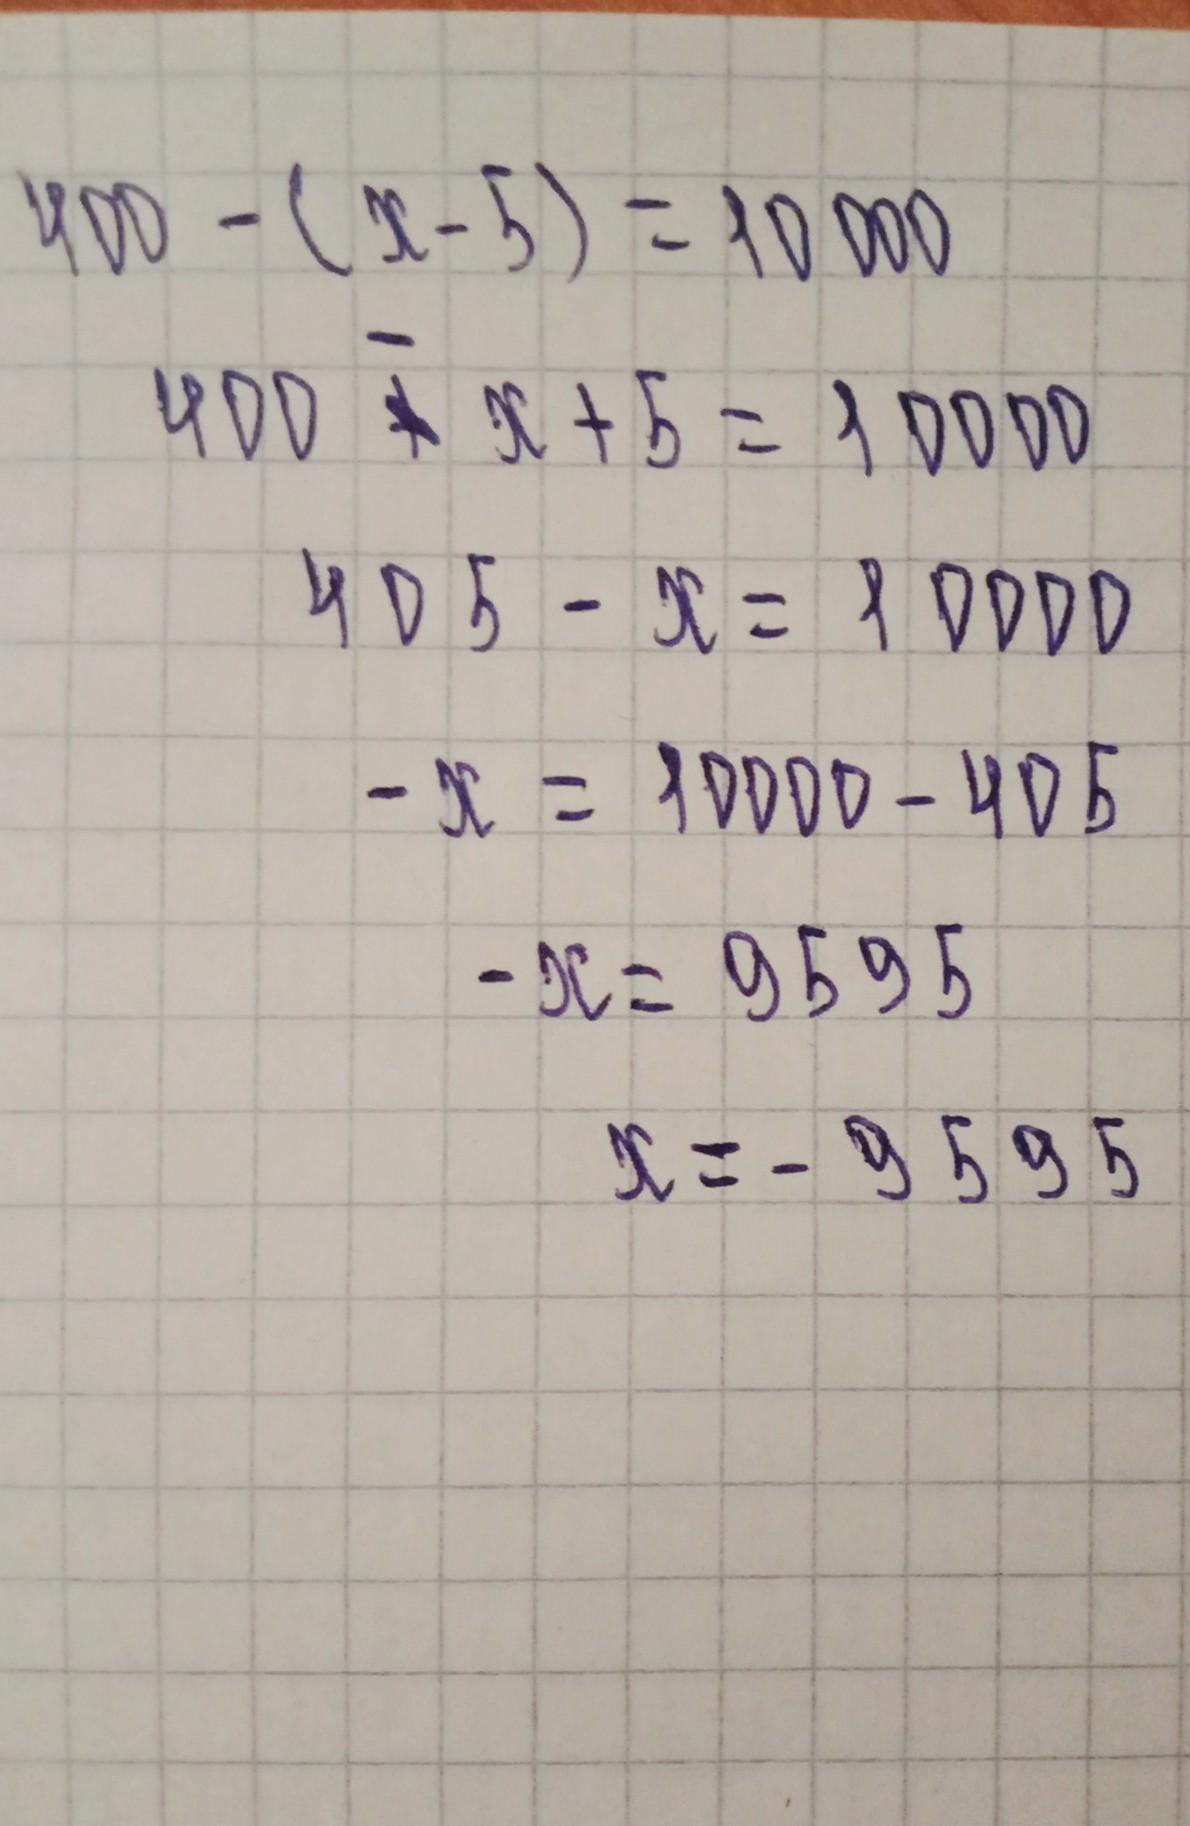 400 - (x - 5) = 10 000
400 - x + 5 = 10000
405 - x = 10000
- x = 10000 - 405
- x = 9595
x = - 9595